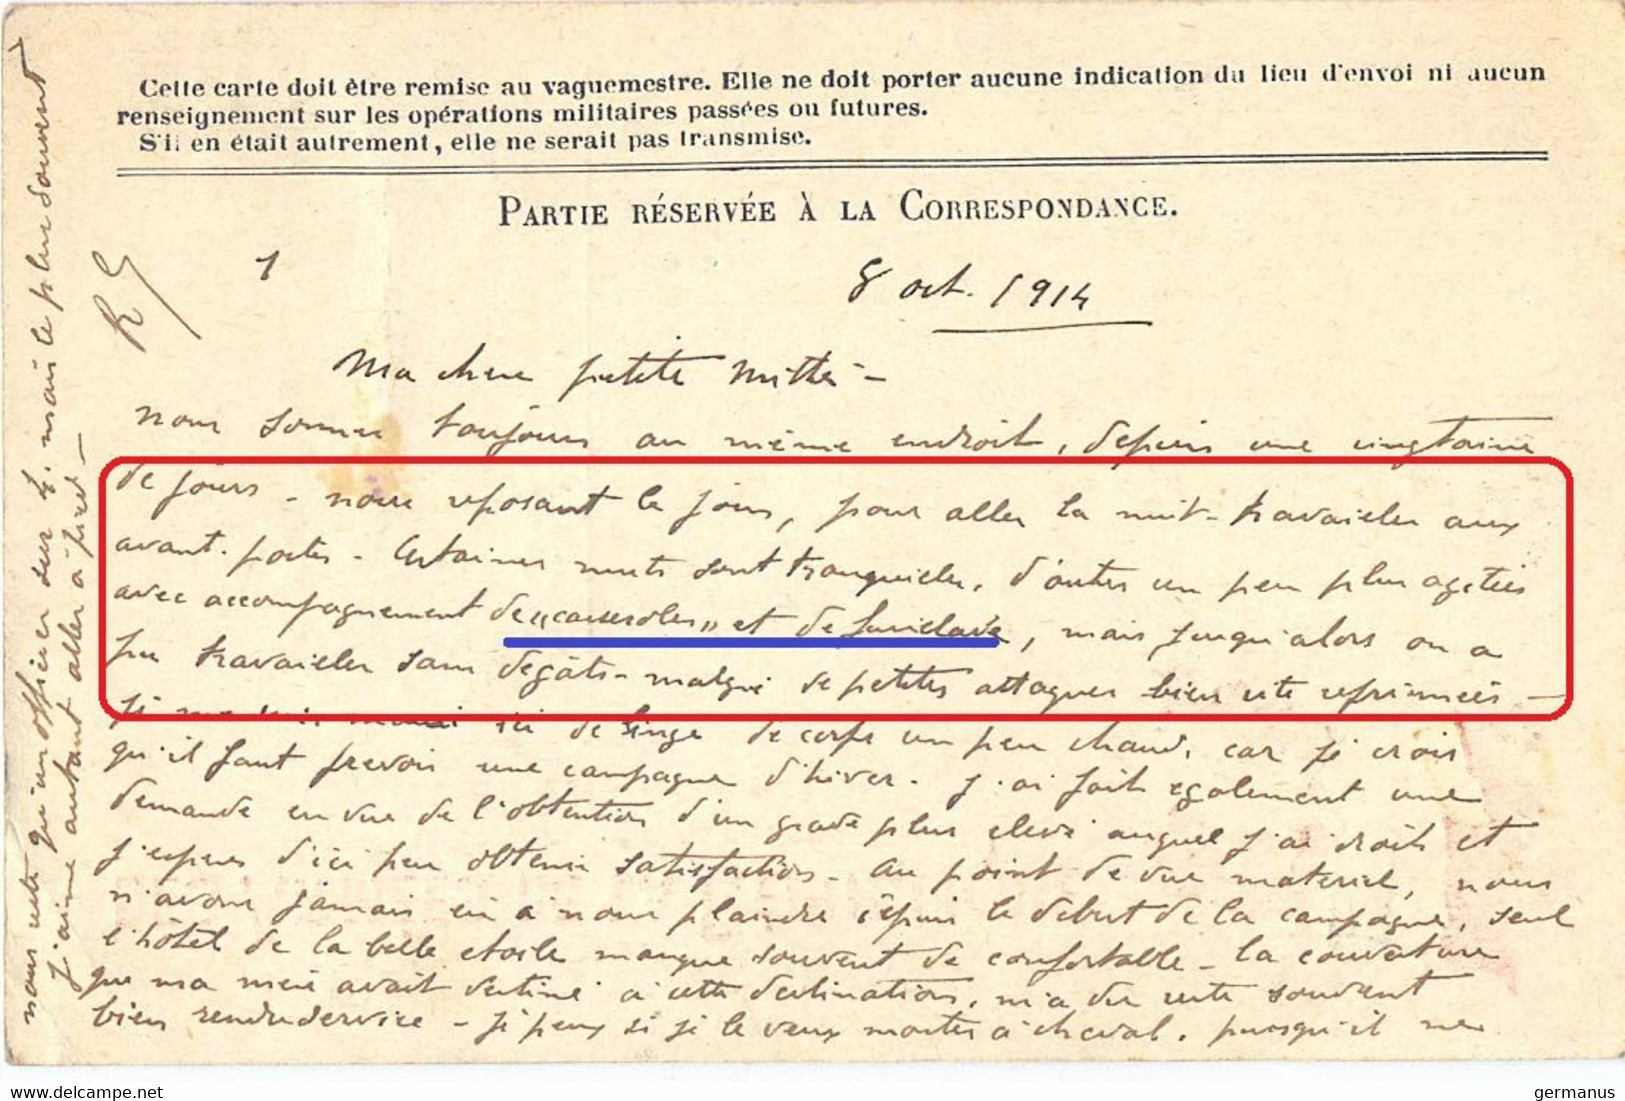 Cette carte doit être remise au vaguemestre. Elle ne doit porter aucune indication du lieu d'envoi ni aucun
renseignement sur les opérations militaires passées ou futures.
S'il en était autrement, elle ne serait pas transmise.
PARTIE RÉSERVÉE À LA CORRESPONDANCE.
1
8 oct. 1914
Ma chere petite
nous sommes toujours au même endroit, depuis une vingtaine
de jours - nous reposant le jour, pour aller la nuit travailler aux
avant-postes - Certaines nuits sont tranquilles, d'autres un peu plus agitées
avec accompagnement de "casseroles" et de fusillade, mais jusqu'alors on a
pu travailler sans dégâts - malgré de petites attaques bien vite reprimées -
je me suis ici de linge de corps un peu chaud, car je crois
qu'il faut prevoir une campagne d'hiver. J'ai fait egalement une
demande en vue de l'obtention d'un grade plus elevé auquel j'ai droit et
j'espere d'ici peu obtenir satisfaction - Au point de vue materiel, nous
n'avons jamais eu à nous plaindre depuis le debut de la campagne, seul
l'hôtel de la belle etoile manque souvent de confortable - la couverture
que ma mere avait destiné à cette destination, m'a du reste souvent
bien rendu service - je peux si je le veux monter à cheval, puisqu'il ne
nous reste qu'un officier sur 4. mais le plus souvent
j'aime autant aller à pied -
germanus
https://www.delcampe.net